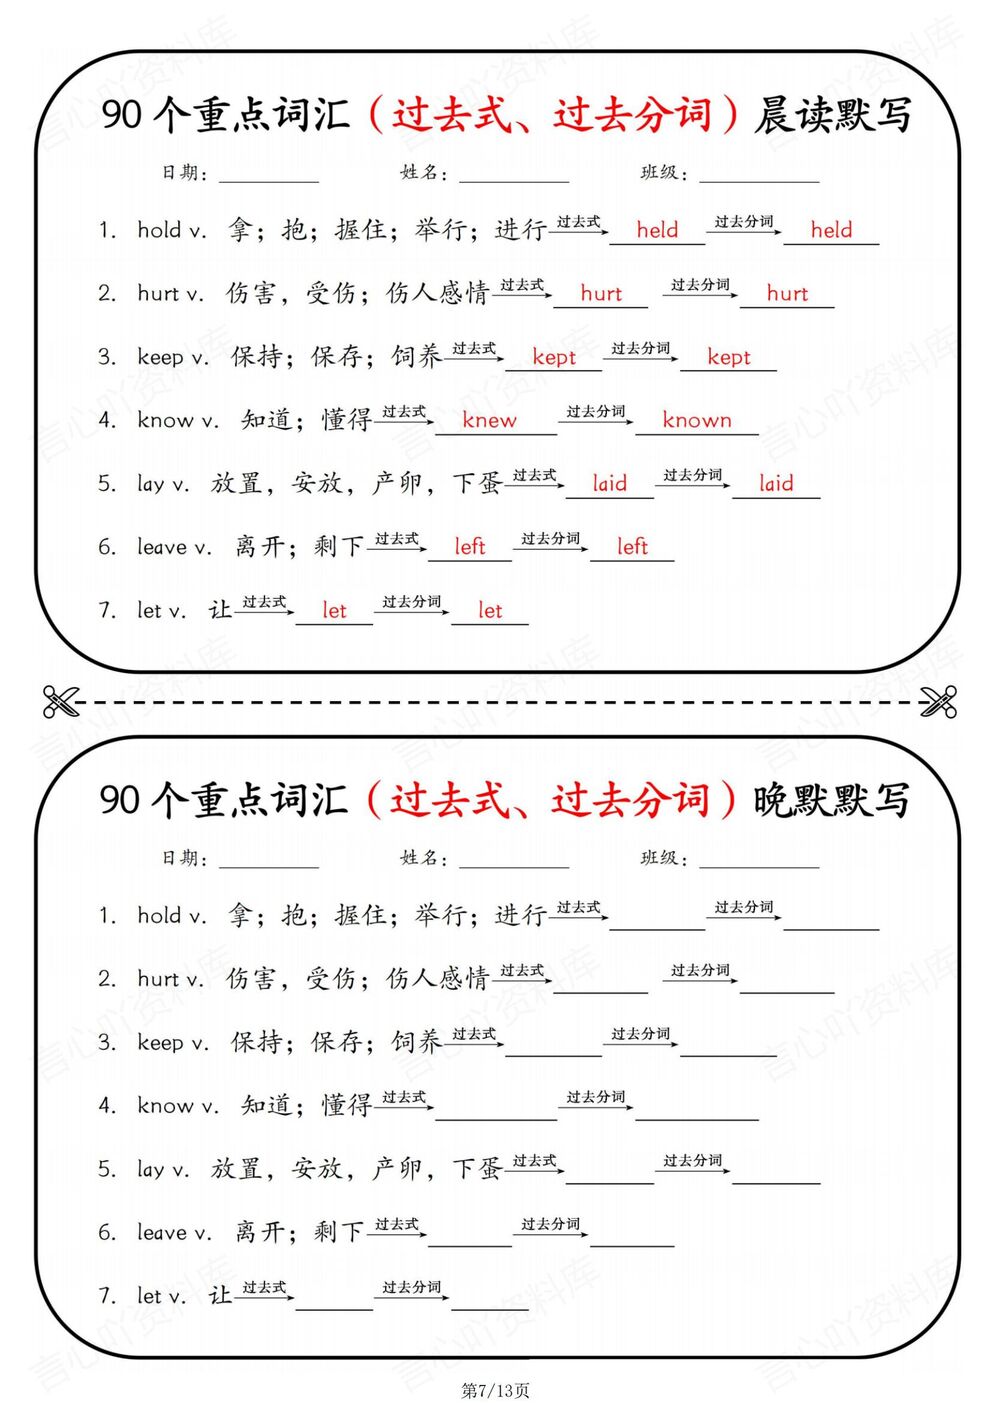 90 个重点词汇（过去式、过去分词）晨读默写
日期：________ 姓名：________ 班级：________
1. hold v. 拿；抱；握住；举行；进行 过去式 held 过去分词 held
2. hurt v. 伤害，受伤；伤人感情 过去式 hurt 过去分词 hurt
3. keep v. 保持；保存；饲养 过去式 kept 过去分词 kept
4. know v. 知道；懂得 过去式 knew 过去分词 known
5. lay v. 放置，安放，产卵，下蛋 过去式 laid 过去分词 laid
6. leave v. 离开；剩下 过去式 left 过去分词 left
7. let v. 让 过去式 let 过去分词 let
90 个重点词汇（过去式、过去分词）晚默默写
日期：________ 姓名：________ 班级：________
1. hold v. 拿；抱；握住；举行；进行 过去式 ________ 过去分词 ________
2. hurt v. 伤害，受伤；伤人感情 过去式 ________ 过去分词 ________
3. keep v. 保持；保存；饲养 过去式 ________ 过去分词 ________
4. know v. 知道；懂得 过去式 ________ 过去分词 ________
5. lay v. 放置，安放，产卵，下蛋 过去式 ________ 过去分词 ________
6. leave v. 离开；剩下 过去式 ________ 过去分词 ________
7. let v. 让 过去式 ________ 过去分词 ________
第7/13页
言心吖资料库